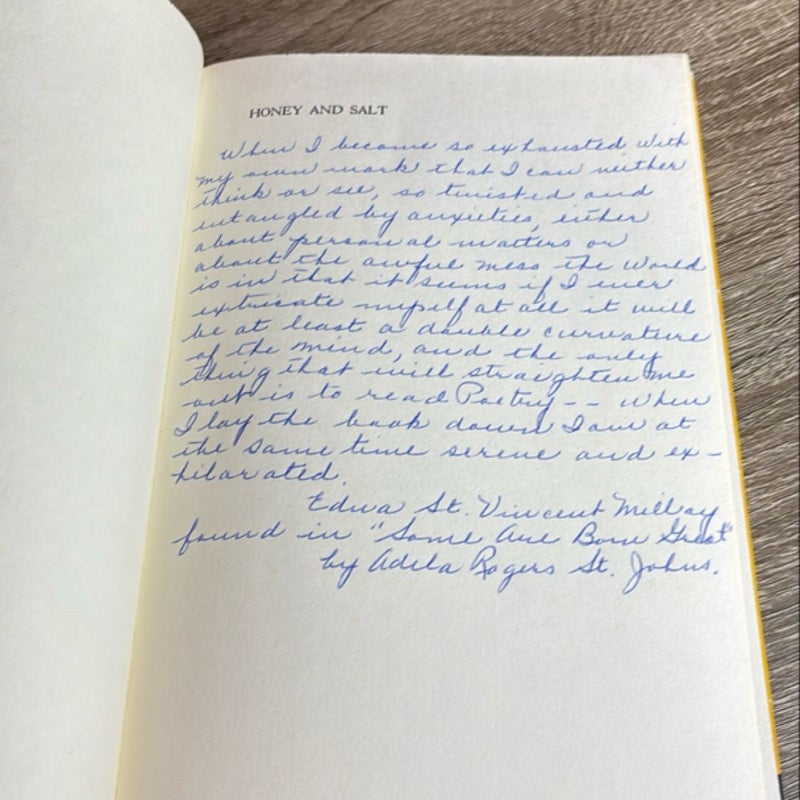 HONEY AND SALT
When I become so exhausted with
my own work that I can neither
think or see, so twisted and
entangled by anxieties, either
about personal matters or
about the awful mess the World
is in that it seems if I ever
extricate myself at all it will
be at least a double curvature
of the mind, and the only
thing that will straighten me
out is to read Poetry -- when
I lay the book down I am at
the same time serene and ex-
hilarated.
Edna St. Vincent Millay
found in "Some Are Born Great"
by Adela Rogers St. Johns.